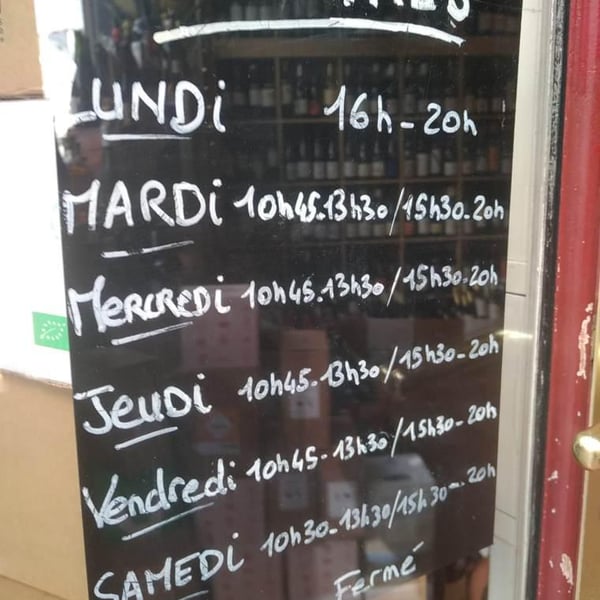 LUNDi 16h-20h
MARDi 10h45-13h30/15h30-20h
MERCREDi 10h45-13h30/15h30-20h
JeuDi 10h45-13h30/15h30-20h
Vendredi 10h45-13h30/15h30-20h
SAMEDi 10h30-13h30/15h30-20h
Fermé